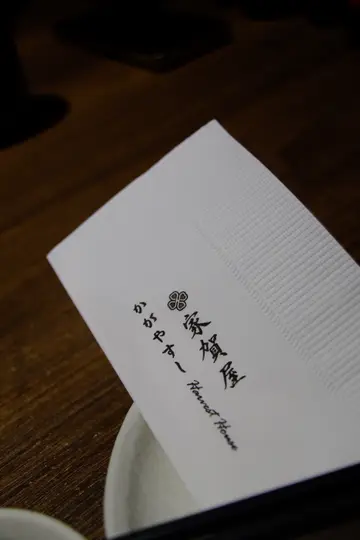 家賀屋
かがやすし